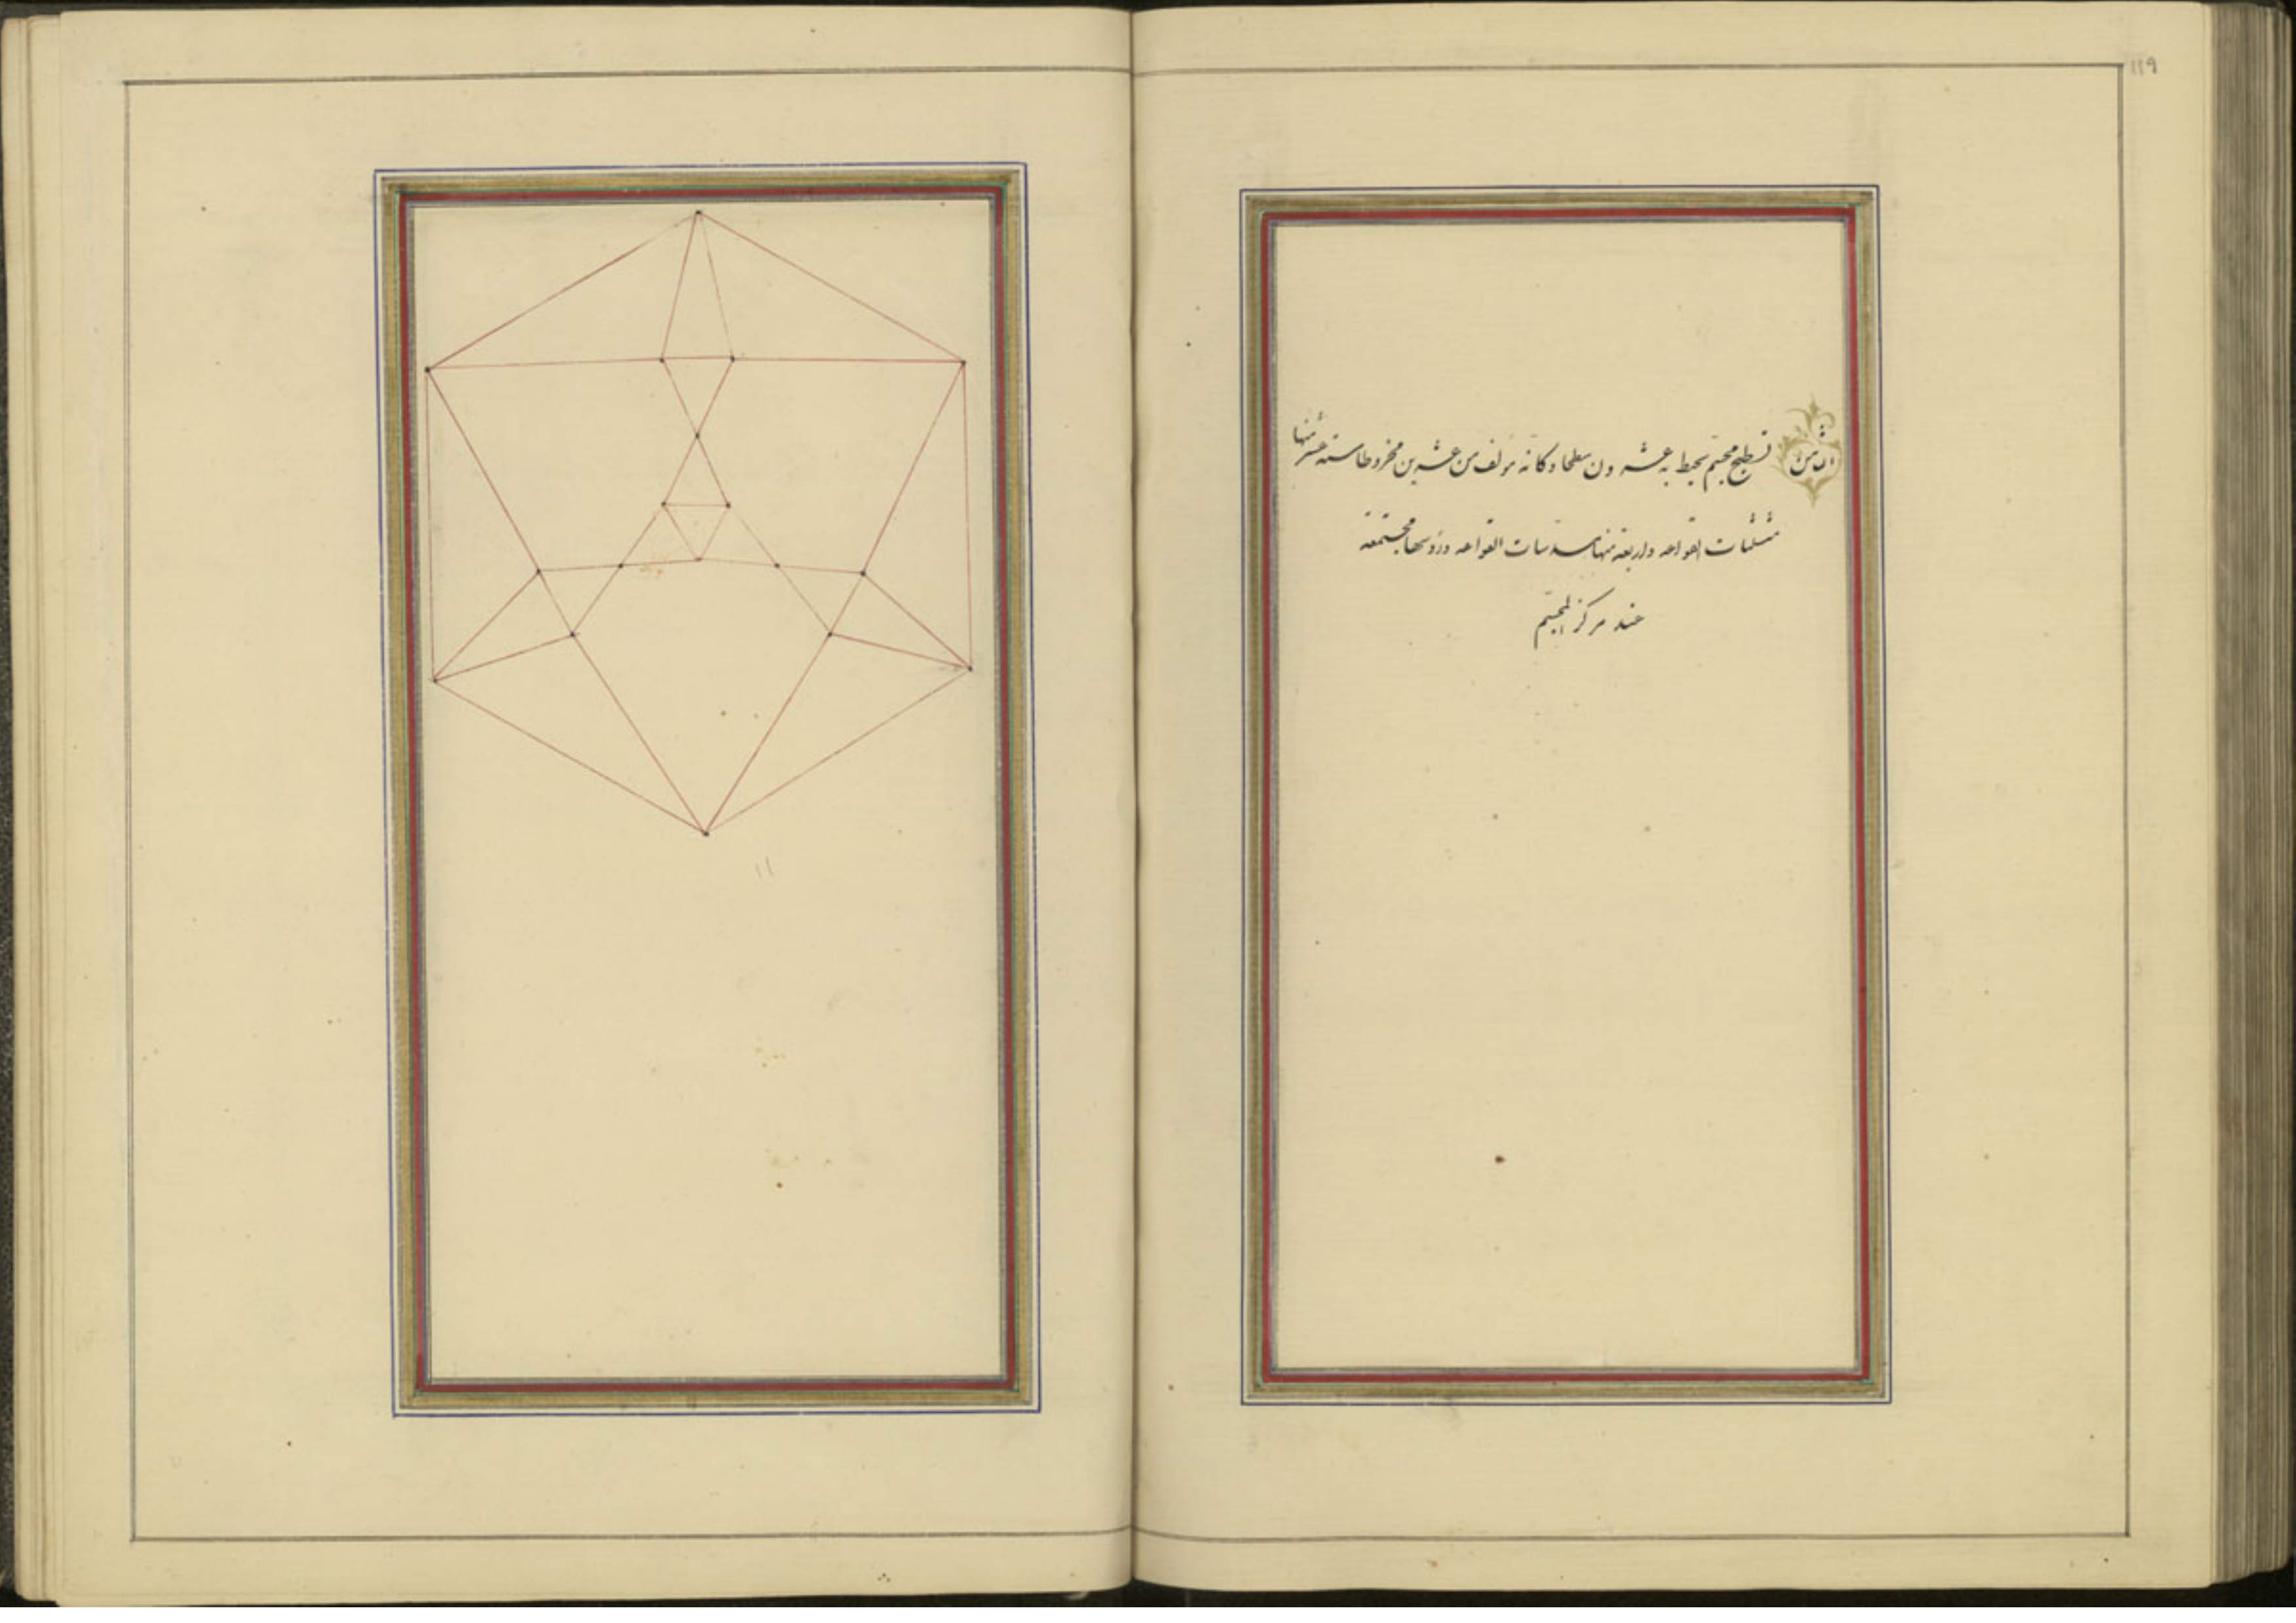 ۱۱۹
الثامن تسطيح مجسم يحيط به عشرون سطحا وكانه مؤلف من عشرين مخروطا ستة عشر منها
مثلثات القواعد واربعة منها مسدسات القواعد ورؤسها مجتمعة
عند مركز المجسم
۱۱